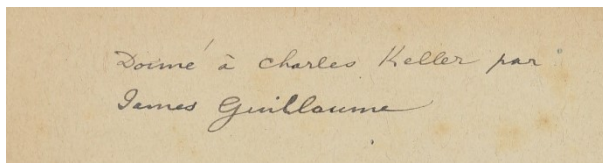 Donné à Charles Keller par
James Guillaume